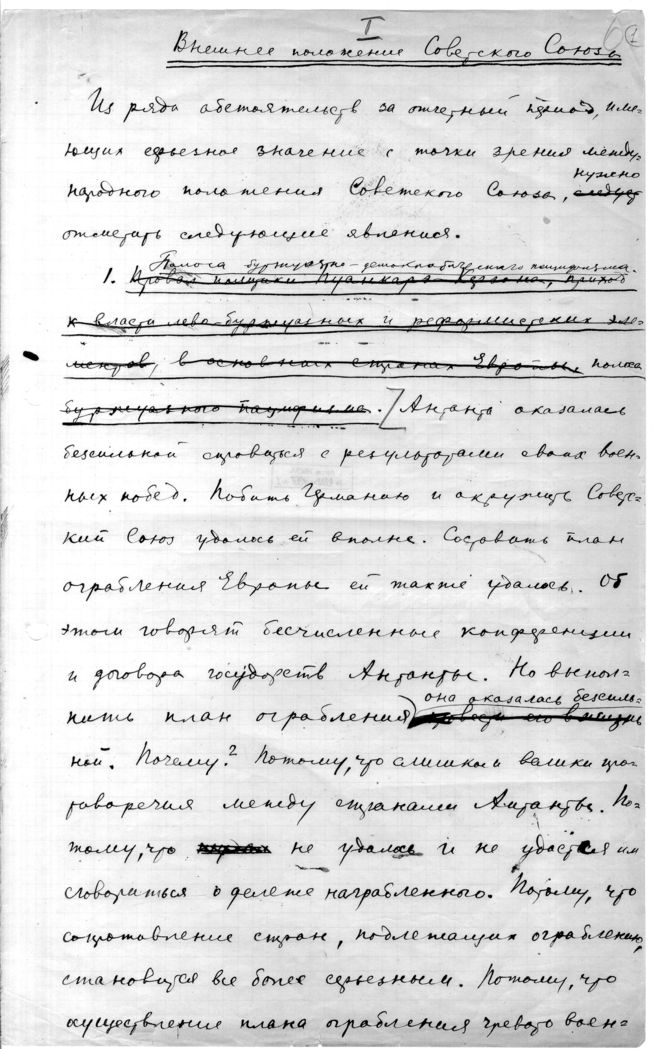 I
Внешнее положение Советского Союза
Из ряда обстоятельств за отчетный период, име=
ющих серьезное значение с точки зрения между=
нужно
народного положения Советского Союза, следует
отметить следующие явления.
Полоса буржуазно-демократического пацифизма.
1. Провал политики Пуанкаре Керзона, приход
к власти лево-буржуазных и реформистских эле=
ментов, в основных странах Европы, полоса
буржуазного пацифизма. Антанта оказалась
безсильной справиться с результатами своих воен=
ных побед. Побить Германию и окружить Совет=
ский Союз удалось ей вполне. Составить план
ограбления Европы ей также удалось. Об
этом говорят бесчисленные конференции
и договора государств Антанты. Но выпол=
она оказалась безсиль=
нить план ограбления провести его в жизнь
ной. Почему? Потому, что слишком велики про=
тиворечия между странами Антанты. По=
тому, что не удалось и не удастся им
сговориться о дележе награбленного. Потому, что
сопротивление стран, подлежащих ограблению,
становится все более серьезным. Потому, что
осуществление плана ограбления чревато воен=